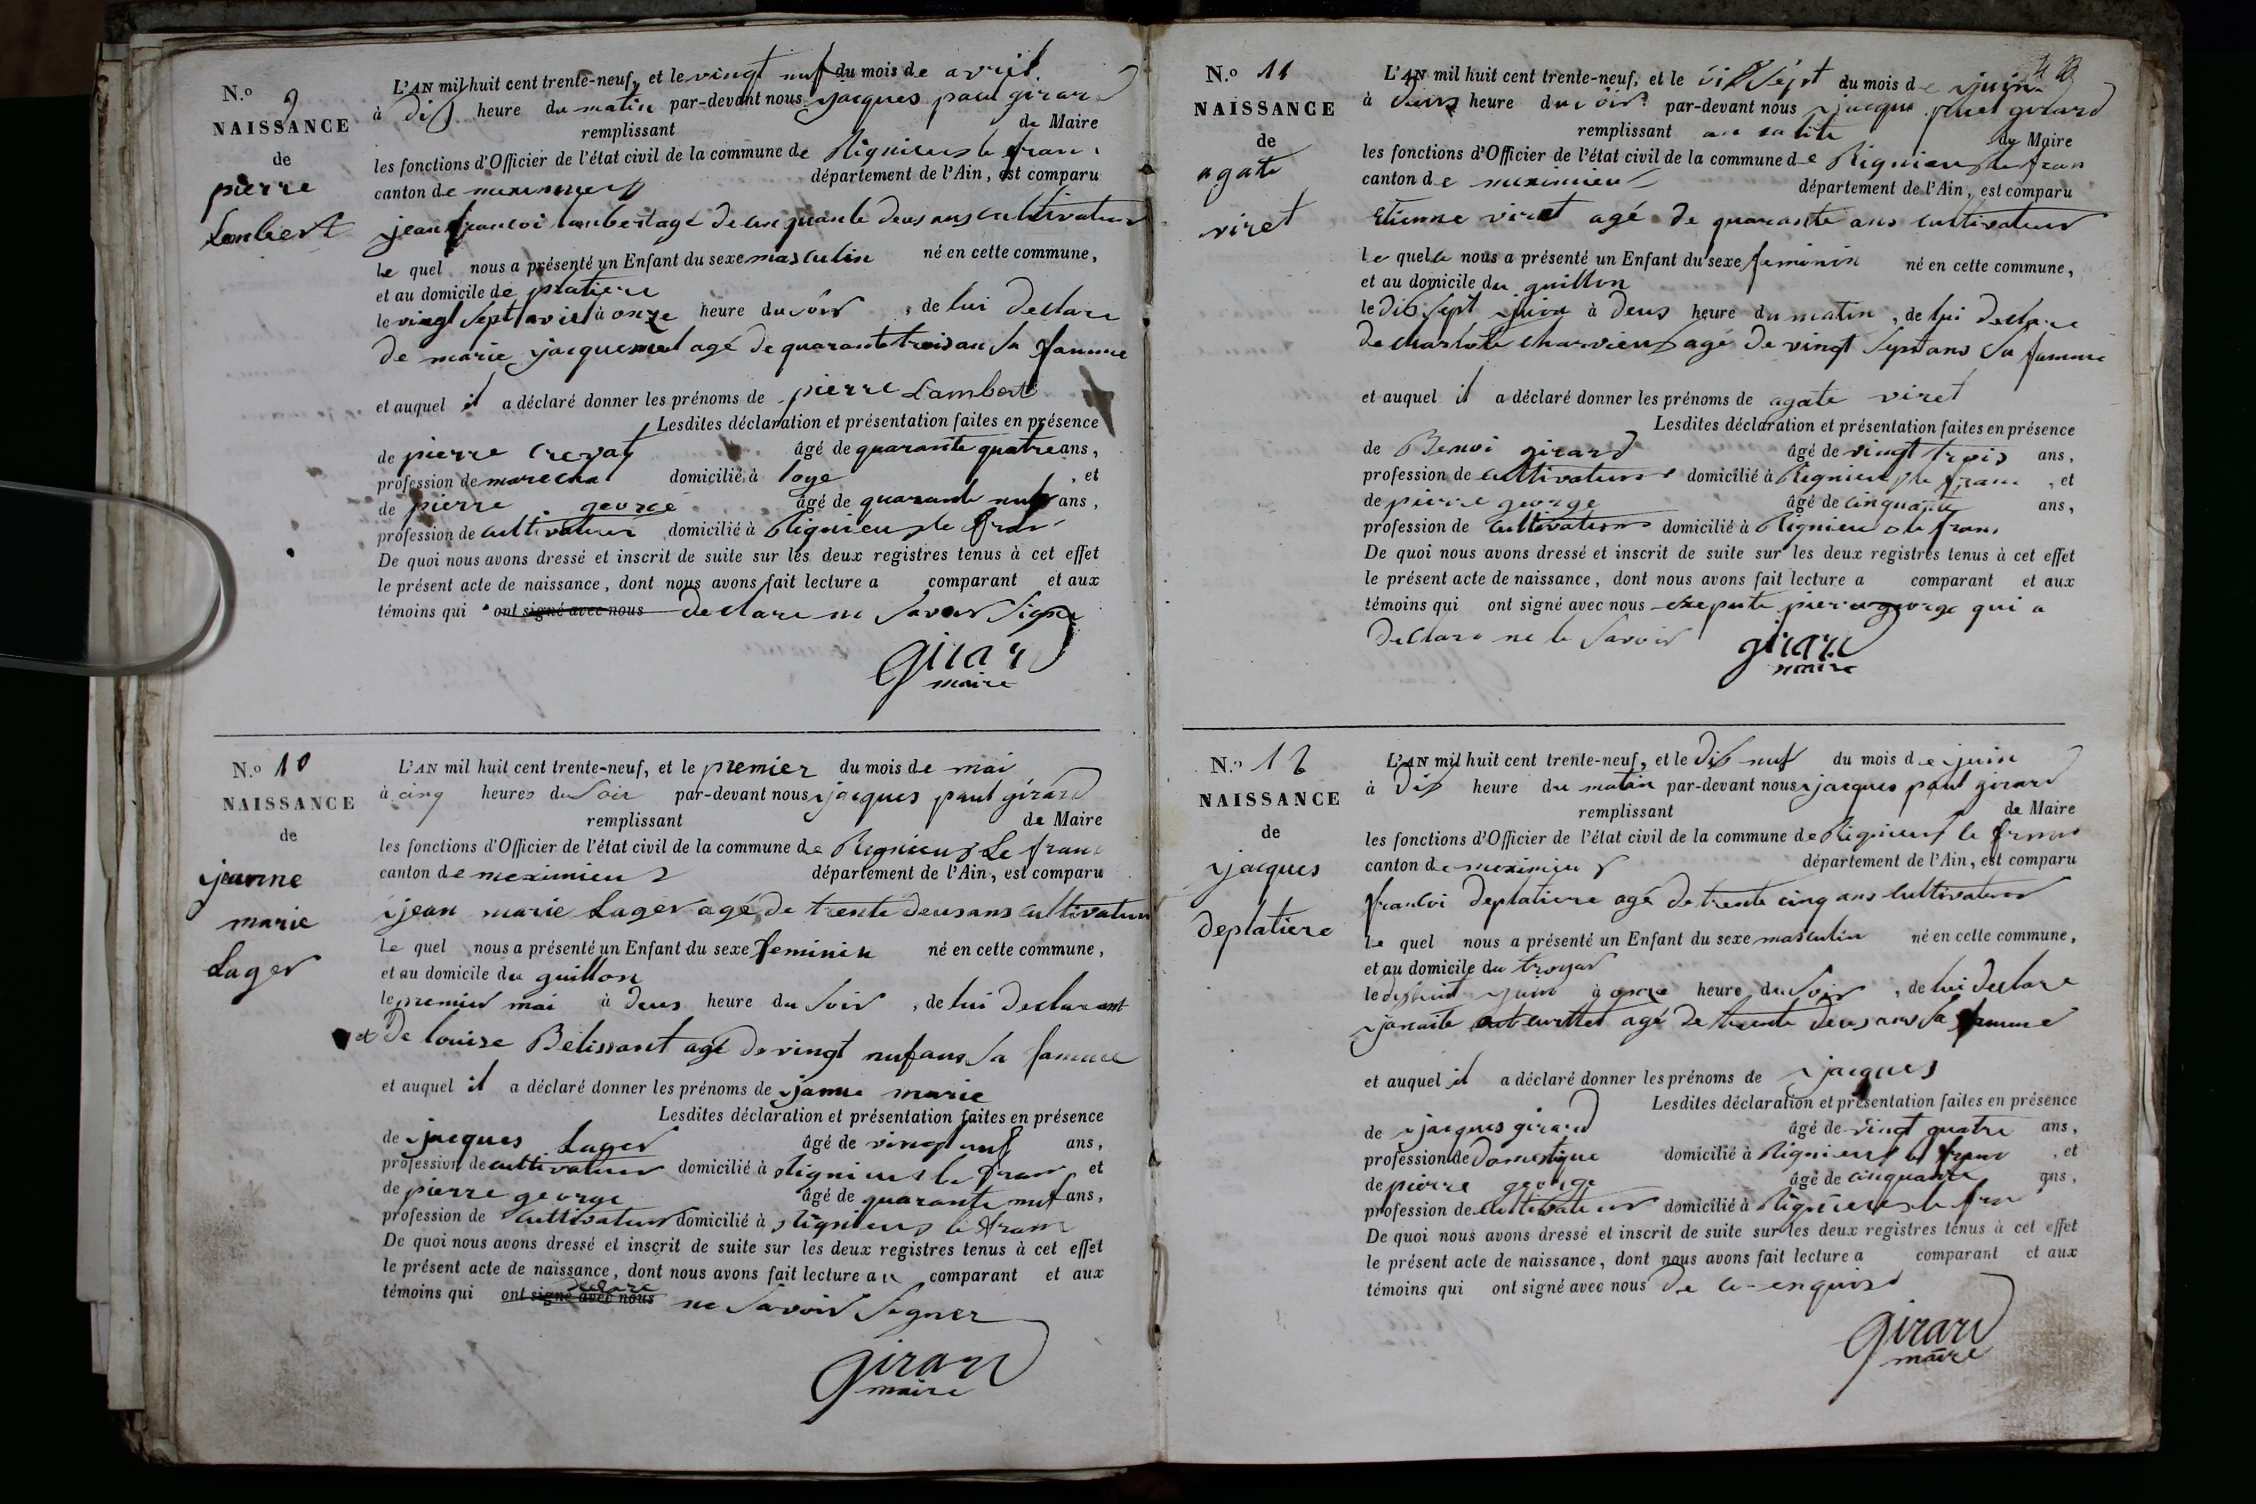 N.o 9
NAISSANCE
de
pierre
Lambert
L'AN mil huit cent trente-neuf, et le vingt nuf du mois de avril
à dis heure du matin par-devant nous jacques paul girard
remplissant de Maire
les fonctions d'Officier de l'état civil de la commune de Rignieus le fran
canton de meximieus département de l'Ain, est comparu
jean francoi lambert agé de cinquante deus ans cultivateur
le quel nous a présenté un Enfant du sexe masculin né en cette commune,
et au domicile de platiere
le vingt sept avril à onze heure du soir, de lui declare
de marie jacquemet agé de quarante trois an sa famme
et auquel il a déclaré donner les prénoms de pierre Lambert
Lesdites déclaration et présentation faites en présence
de pierre crevat âgé de quarante quatre ans,
profession de marechal domicilié à loye, et
de pierre george âgé de quarante nuf ans,
profession de cultivateur domicilié à Rignieus le fran
De quoi nous avons dressé et inscrit de suite sur les deux registres tenus à cet effet
le présent acte de naissance, dont nous avons fait lecture a comparant et aux
témoins qui ont signé avec nous declare ne savoir signe
girard
maire
N.o 10
NAISSANCE
de
jeanne
marie
Lager
L'AN mil huit cent trente-neuf, et le premier du mois de mai
à cinq heures du soir par-devant nous jacques paul girard
remplissant de Maire
les fonctions d'Officier de l'état civil de la commune de Rignieus Le fran
canton de meximieus département de l'Ain, est comparu
jean marie Lager agé de trente deus ans cultivateur
le quel nous a présenté un Enfant du sexe feminin né en cette commune,
et au domicile du guillon
le premier mai à deus heure du soir, de lui declarant
et De louise Belissant agé de vingt nuf ans sa famme
et auquel il a déclaré donner les prénoms de janne marie
Lesdites déclaration et présentation faites en présence
de jacques Lager âgé de vingt nuf ans,
profession de cultivateur domicilié à Rignieus le fran et
de pierre george âgé de quarante nuf ans,
profession de cultivateur domicilié à Rignieus le fran
De quoi nous avons dressé et inscrit de suite sur les deux registres tenus à cet effet
le présent acte de naissance, dont nous avons fait lecture au comparant et aux
témoins qui ont signé avec nous declare ne savoir signer
girard
maire
N.o 11
NAISSANCE
de
agate
viret
L'AN mil huit cent trente-neuf, et le dix sept du mois de juin
à deus heure du soir par-devant nous jacque paul girard
remplissant de Maire
les fonctions d'Officier de l'état civil de la commune de Rignieus le fran
canton de meximieus département de l'Ain, est comparu
Etienne viret agé de quarante ans cultivateur
le quele nous a présenté un Enfant du sexe feminin né en cette commune,
et au domicile du guillon
le dis sept juin à deus heure du matin, de lui declare
de charlote charvieus agé de vingt sept ans sa famme
et auquel il a déclaré donner les prénoms de agate viret
Lesdites déclaration et présentation faites en présence
de Benoi girard âgé de vingt trois ans,
profession de cultivateur domicilié à Rignieus le fran, et
de pierre george âgé de cinquante ans,
profession de cultivateur domicilié à Rignieus le fran
De quoi nous avons dressé et inscrit de suite sur les deux registres tenus à cet effet
le présent acte de naissance, dont nous avons fait lecture a comparant et aux
témoins qui ont signé avec nous exepte pierre george qui a
declare ne le savoir girard
maire
N.o 12
NAISSANCE
de
jacques
deplatiere
L'AN mil huit cent trente-neuf, et le dis nuf du mois de juin
à dis heure du matin par-devant nous jacques paul girard
remplissant de Maire
les fonctions d'Officier de l'état civil de la commune de Rignieus le fran
canton de meximieus département de l'Ain, est comparu
francoi deplatiere agé de trente cinq ans cultivateur
le quel nous a présenté un Enfant du sexe masculin né en cette commune,
et au domicile du
le dishuit juin à onze heure du soir, de lui declare
agé de trente deus ans sa famme
et auquel il a déclaré donner les prénoms de jacques
Lesdites déclaration et présentation faites en présence
de jacques girard âgé de vingt quatre ans,
profession de domestique domicilié à Rignieus le fran, et
de pierre george âgé de cinquante ans,
profession de cultivateur domicilié à Rignieus le fran
De quoi nous avons dressé et inscrit de suite sur les deux registres tenus à cet effet
le présent acte de naissance, dont nous avons fait lecture a comparant et aux
témoins qui ont signé avec nous de ce enquis
girard
maire